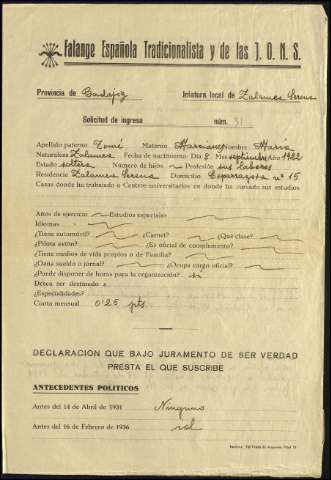 Falange Española Tradicionalista y de las J. O. N. S.
Provincia de Badajoz Jefatura local de Zalamea Serena
Solicitud de ingreso núm. 31
Apellido paterno Tomé Materno Nombre María
Naturaleza Zalamea Fecha de nacimiento: Día 8 Mes septiembre Año 1922
Estado soltera Número de hijos Profesión sus labores
Residencia Zalamea Serena Domicilio Esparragosa nº 15
Casas donde ha trabajado o Centros universitarios en donde ha cursado sus estudios
Años de ejercicio Estudios especiales
Idiomas
¿Tiene automóvil? ¿Carnet? ¿Qué clase?
¿Pilota avión? ¿Es oficial de complemento?
¿Tiene medios de vida propios o de Familia?
¿Gana sueldo o jornal? ¿Ocupa cargo oficial?
¿Puede disponer de horas para la organización? si
Desea ser destinado a
¿Especialidades?
Cuota mensual 0'25 pts.
DECLARACION QUE BAJO JURAMENTO DE SER VERDAD
PRESTA EL QUE SUSCRIBE
ANTECEDENTES POLITICOS
Antes del 14 de Abril de 1931 Ninguno
Antes del 16 de Febrero de 1936